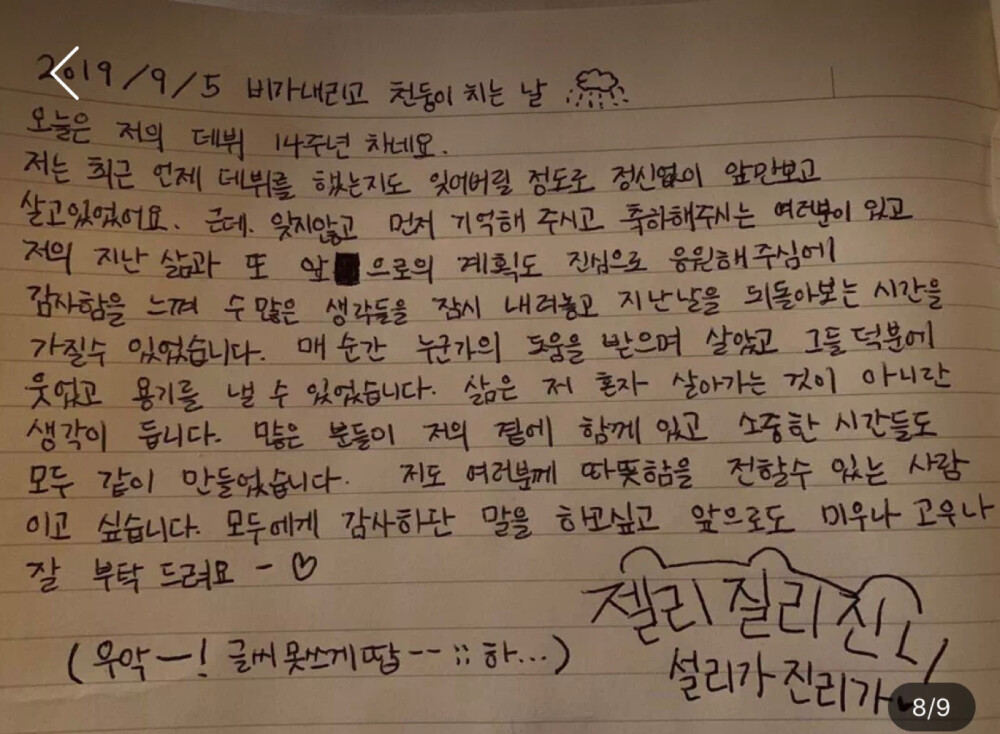 2019/9/5 비가내리고 천둥이 치는 날
오늘은 저의 데뷔 14주년 차네요.
저는 최근 언제 데뷔를 했는지도 잊어버릴 정도로 정신없이 앞만보고
살고있었어요. 근데. 잊지않고 먼저 기억해 주시고 축하해주시는 여러분이 있고
저의 지난 삶과 또 앞으로의 계획도 진심으로 응원해주심에
감사함을 느껴 수많은 생각들을 잠시 내려놓고 지난날을 되돌아보는 시간을
가질수 있었습니다. 매 순간 누군가의 도움을 받으며 살았고 그들 덕분에
웃었고 용기를 낼 수 있었습니다. 삶은 저 혼자 살아가는 것이 아니란
생각이 듭니다. 많은 분들이 저의 곁에 함께 있고 소중한 시간들도
모두 같이 만들었습니다. 저도 여러분께 따뜻함을 전할수 있는 사람
이고 싶습니다. 모두에게 감사하단 말을 하고싶고 앞으로도 미우나 고우나
잘 부탁 드려요 - ♡
젤리 질리 진
(우악ㅡ! 글씨 못쓰게땁--;; 하...)
설리가 진리가
8/9